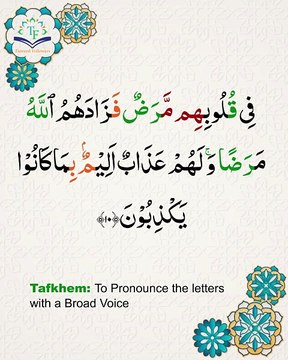 TF
فِى قُلُوبِهِم مَّرَضٌ فَزَادَهُمُ ٱللَّهُ
مَرَضًا وَلَهُمْ عَذَابٌ اَلِيْمٌ بِمَا كَانُوْا
يَكْذِبُوْنَ ﴿١٠﴾
Tafkhem: To Pronounce the letters
with a Broad Voice